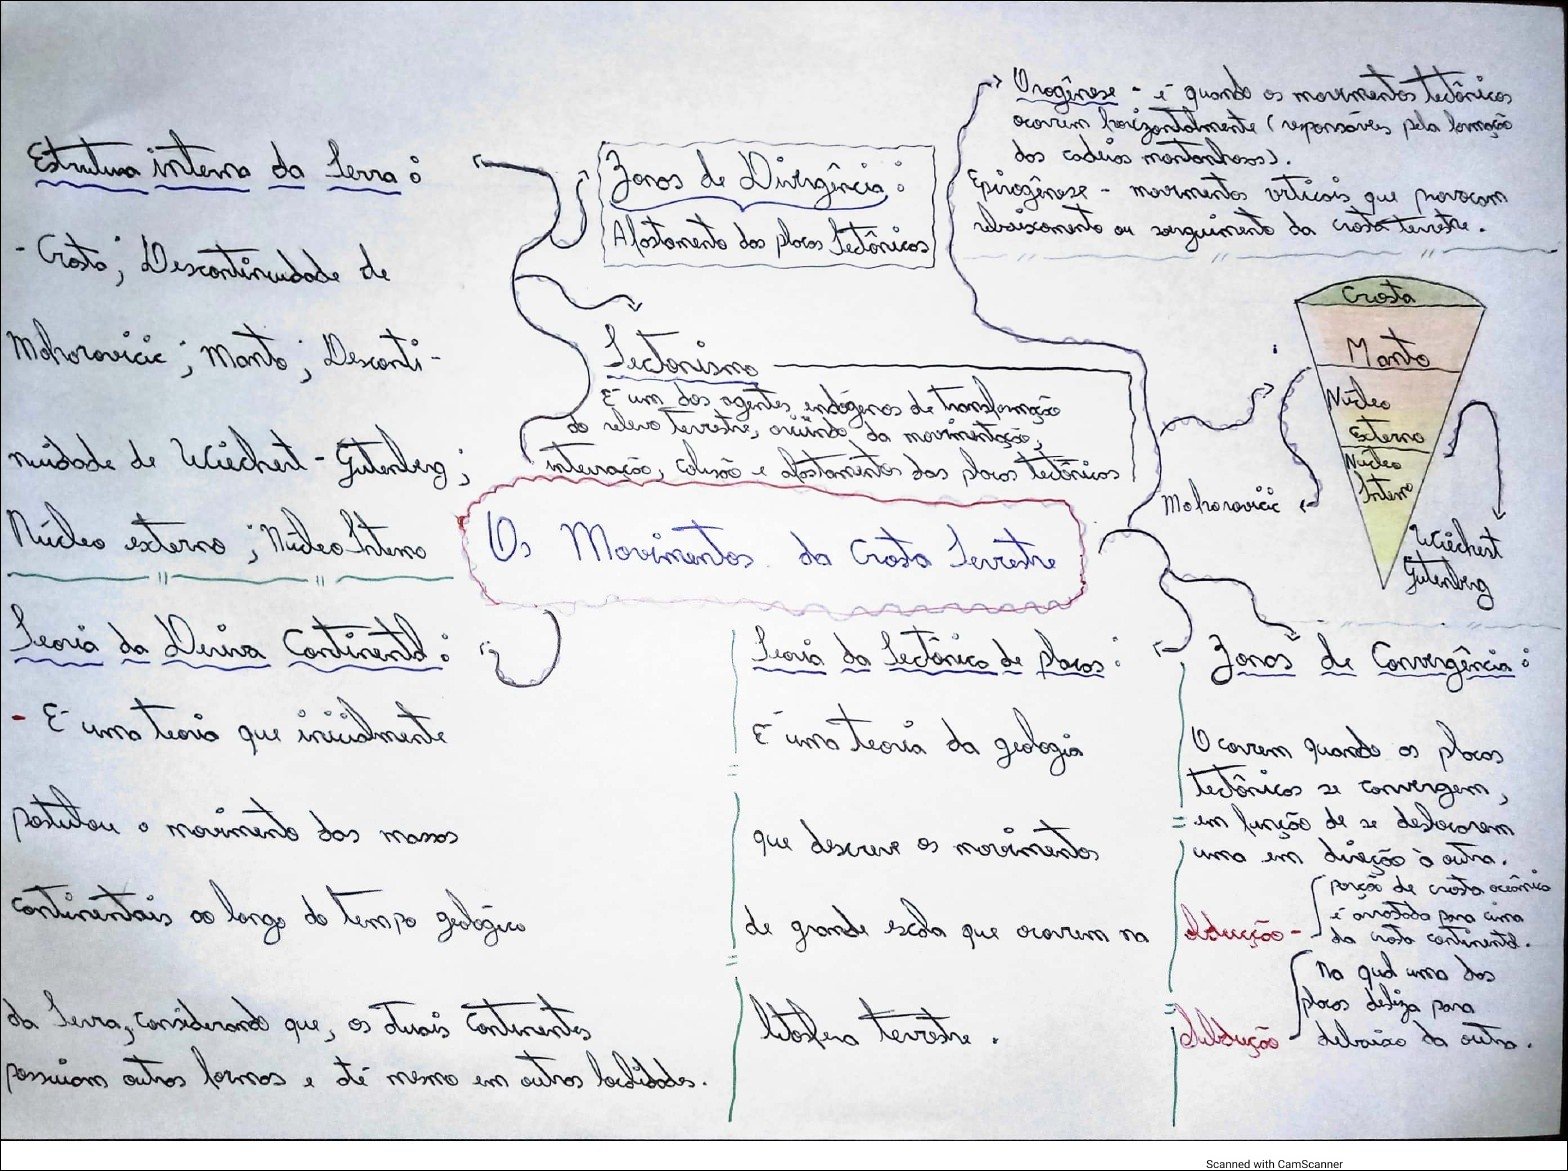 Estrutura interna da Terra:
- Crosta; Descontinuidade de
Mohorovicic; Manto; Desconti-
nuidade de Wiechert-Gutenberg;
Núcleo externo; Núcleo Interno
Zonas de Divergência:
Afastamento das placas Tectônicas
Tectonismo
É um dos agentes endógenos de transformação
do relevo terrestre, oriundo da movimentação,
interação, colisão e afastamentos das placas tectônicas
Orogênese - é quando os movimentos tectônicos
ocorrem horizontalmente (responsáveis pela formação
das cadeias montanhosas).
Epirogênese - movimentos verticais que provocam
rebaixamento ou soerguimento da crosta terrestre.
Crosta
Manto
Núcleo
Externo
Núcleo
Interno
Mohorovicic
Wiechert
Gutenberg
Os Movimentos da Crosta Terrestre
Teoria da Deriva Continental:
- É uma teoria que inicialmente
postulou o movimento das massas
continentais ao longo do tempo geológico
da Terra, considerando que, os atuais continentes
possuíam outras formas e até mesmo em outras localidades.
Teoria da Tectônica de placas:
É uma teoria da geologia
que descreve os movimentos
de grande escala que ocorrem na
litosfera terrestre.
Zonas de Convergência:
Ocorrem quando as placas
tectônicas se convergem,
em função de se deslocarem
uma em direção à outra.
Obducção - porção de crosta oceânica
é arrastada para cima
da crosta continental.
Subdução - Na qual uma das
placas desliza para
debaixo da outra.
Scanned with CamScanner